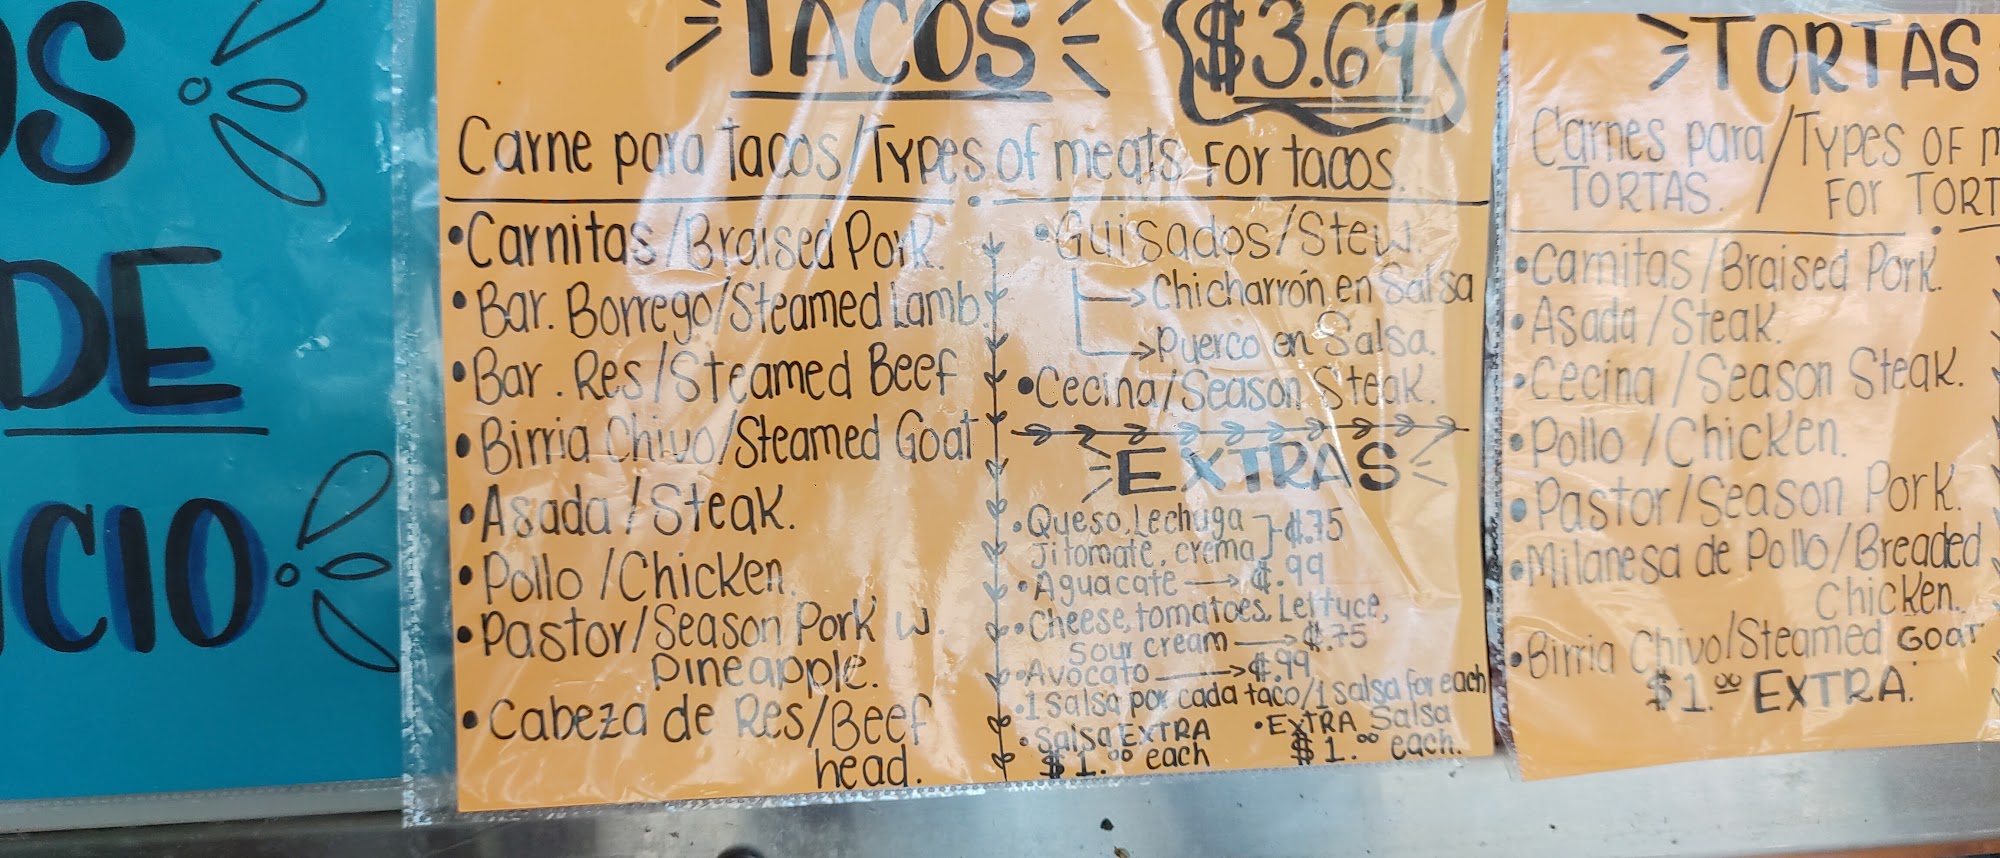 DE
TACOS $3.69
Carne para Tacos/Types of meats For tacos.
•Carnitas/Braised Pork.
•Bar. Borrego/Steamed Lamb
•Bar. Res/Steamed Beef
•Birria Chivo/Steamed Goat
•Asada/Steak.
•Pollo/Chicken.
•Pastor/Season Pork w.
Pineapple.
•Cabeza de Res/Beef
head.
•Guisados/Stew.
Chicharrón en Salsa
Puerco en Salsa.
•Cecina/Season Steak.
EXTRAS
•Queso, Lechuga
Jitomate, crema ¢.75
•Aguacate ¢.99
•Cheese, tomatoes, Lettuce,
sour cream ¢.75
•Avocato ¢.99
•1 Salsa por cada taco/1 salsa for each
•Salsa EXTRA
$1.00 each
•EXTRA Salsa
$1.00 each.
TORTAS
Carnes para/Types OF
TORTAS. FOR
•Carnitas/Braised Pork.
•Asada/Steak.
•Cecina/Season Steak.
•Pollo/Chicken.
•Pastor/Season Pork.
•Milanesa de Pollo/Breaded
Chicken.
•Birria Chivo/Steamed GOAT
$1.00 EXTRA.